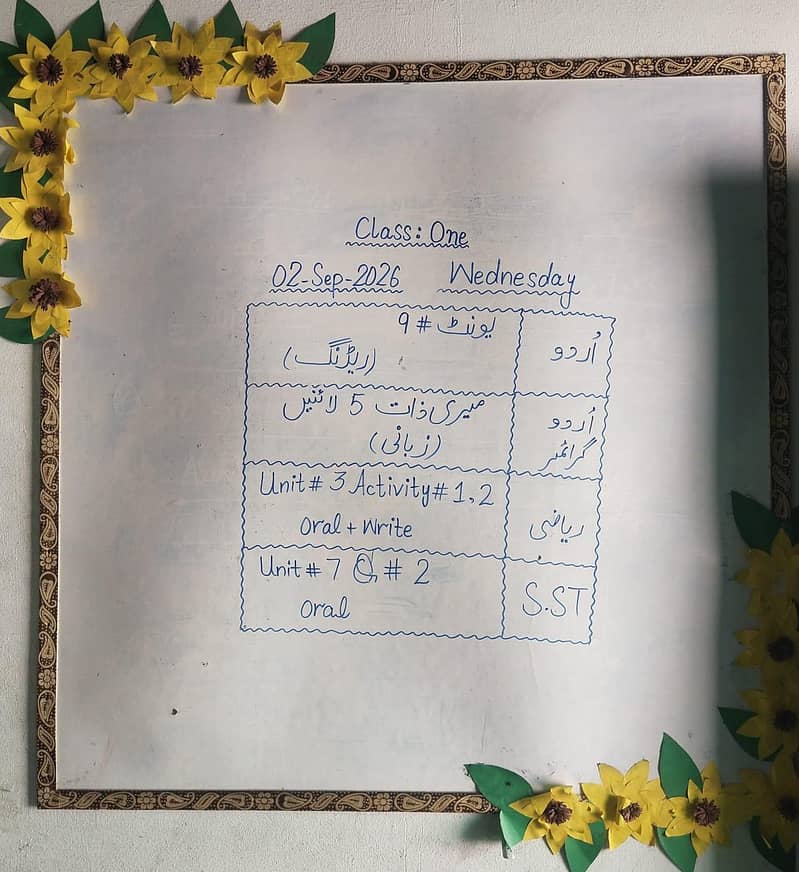 Class: One
02-Sep-2026 Wednesday
اُردو
یونٹ # 9
(ریڈنگ)
اُردو
گرائمر
میری ذات 5 لائنیں
(زبانی)
ریاضی
Unit # 3 Activity # 1,2
Oral + Write
S.ST
Unit # 7 Q # 2
Oral